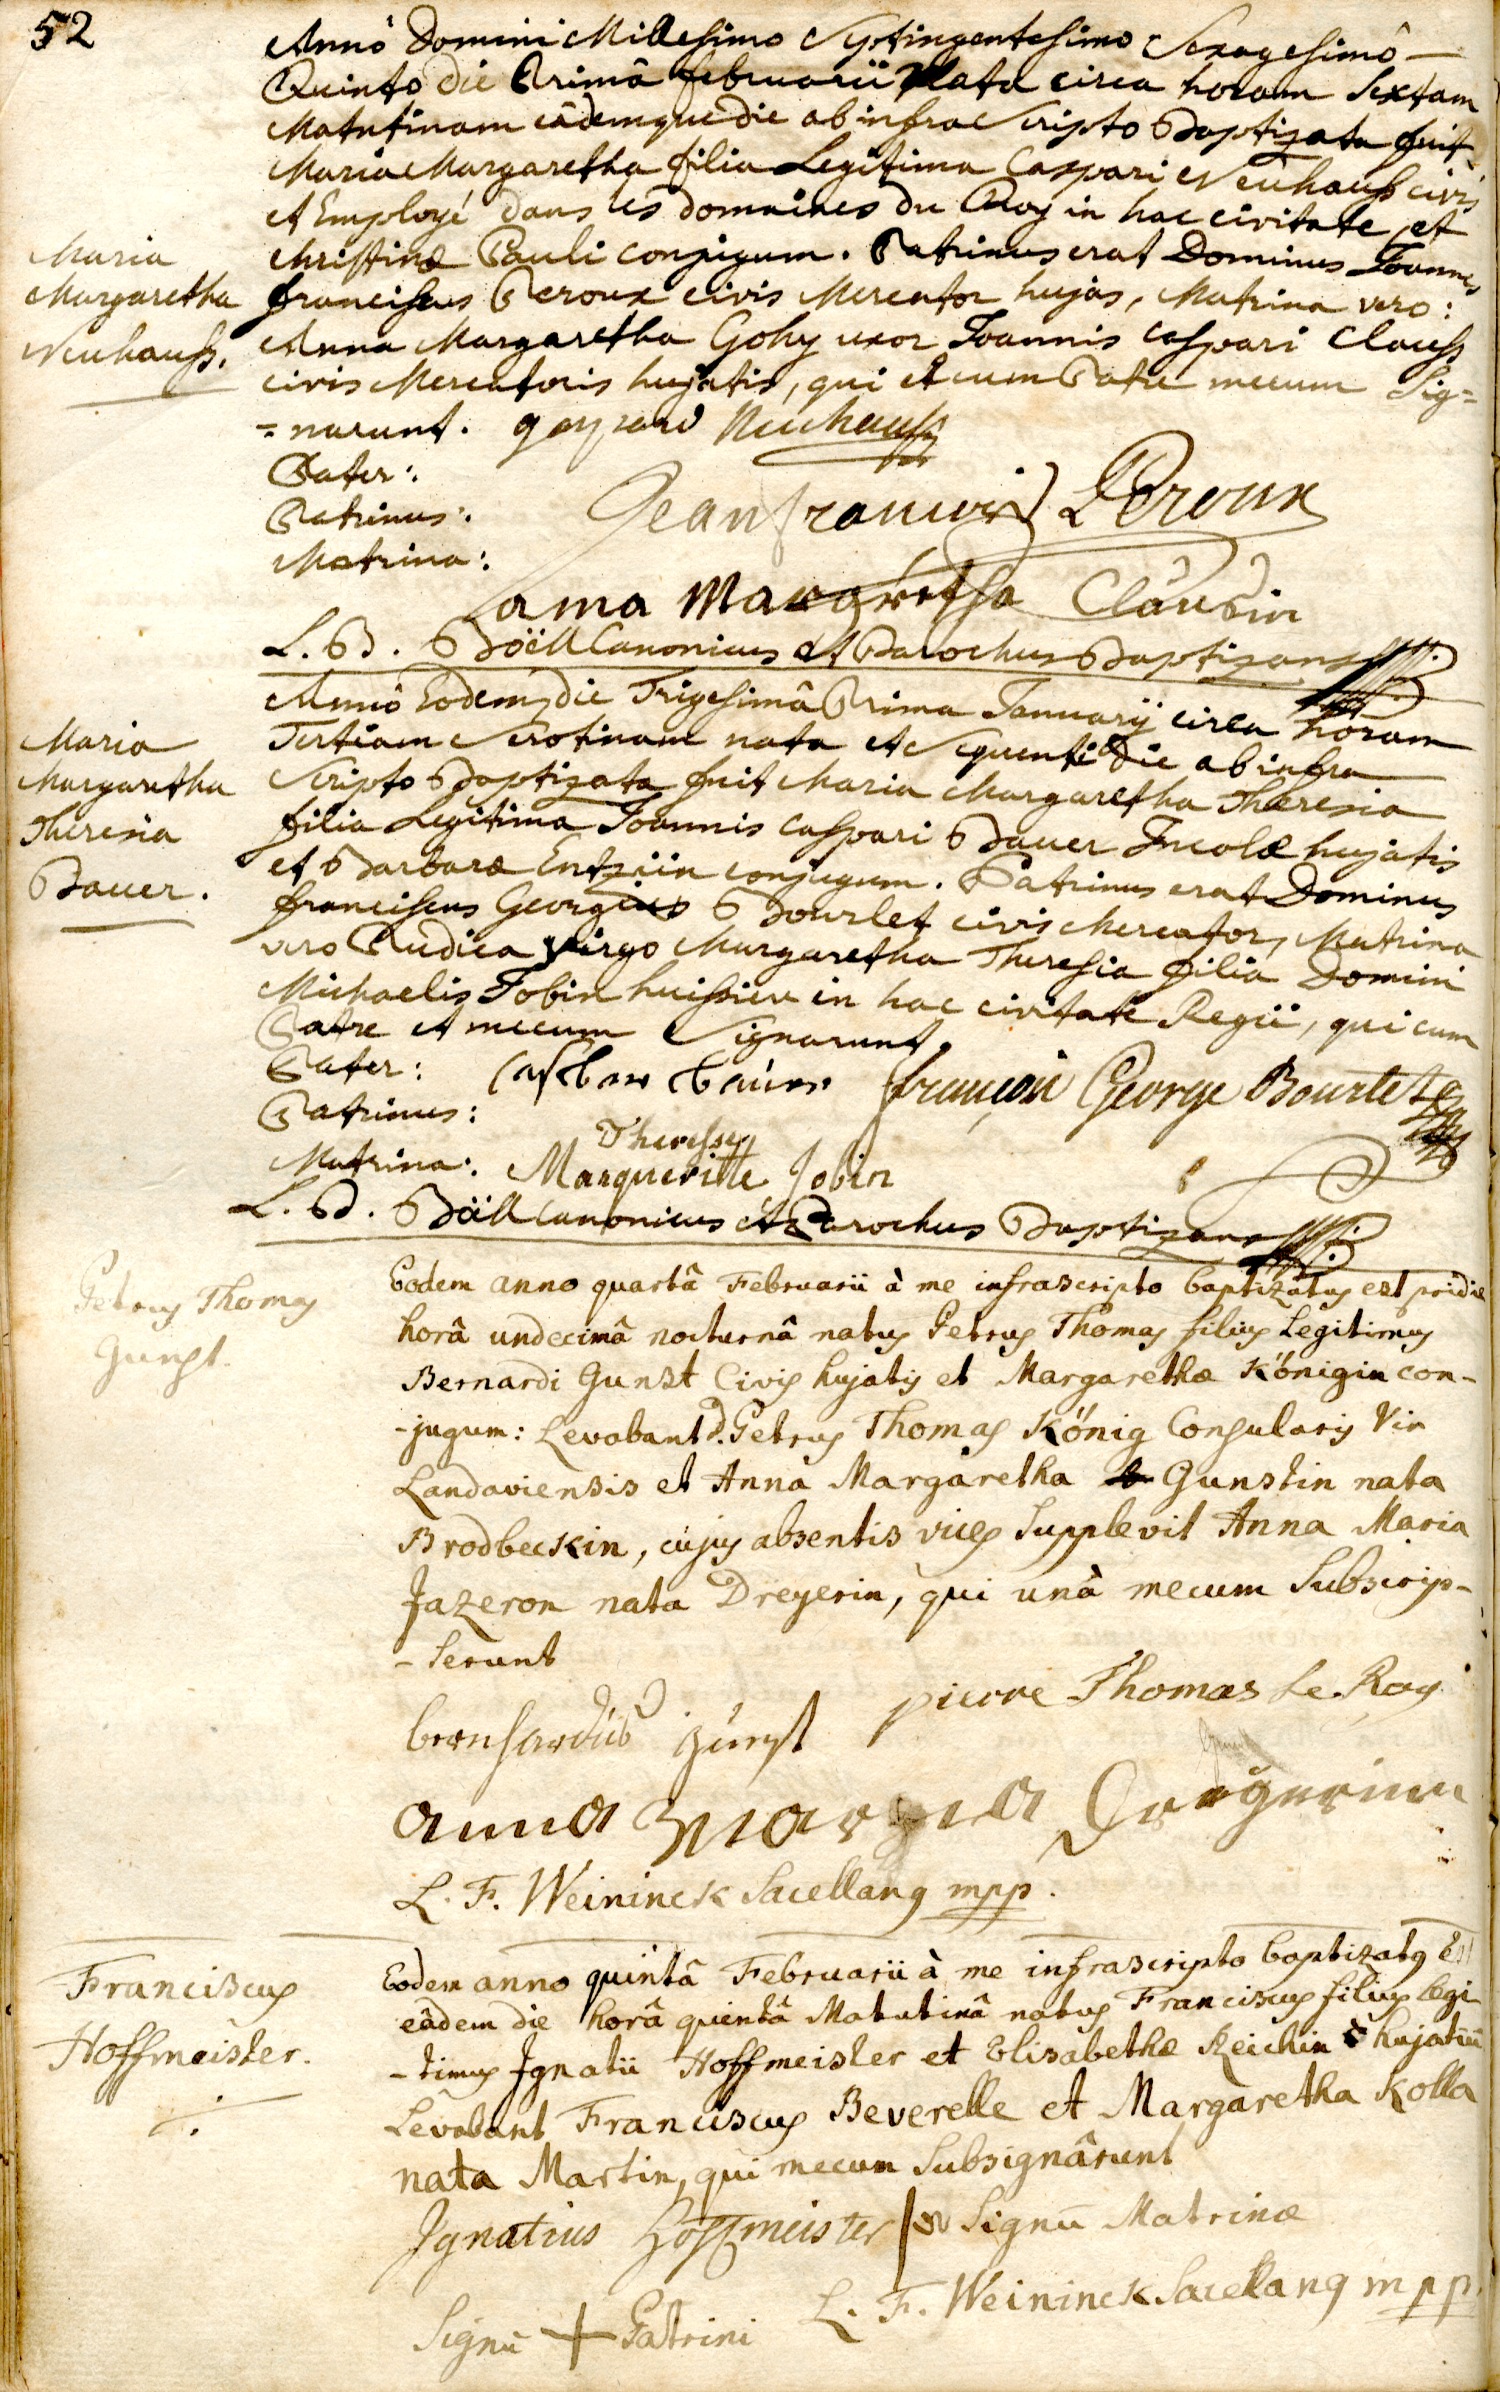 52
Annô Domini Millesimo Septingentesimo Sexagesimô
Quinto die Primâ februarii Nata circa horam Sextam
Matutinam eâdemque die ab infra Scripto Baptizata fuit
Maria Margaretha filia Legitima Caspari Neuhauss civis
et Employé dans les domaines du Roy in hac civitate, et
Christinæ Pauli conjugum. Patrinus erat Dominus Joannes
franciscus Peroux civis Mercator hujas, Matrina vero:
Anna Margaretha Gohy uxor Joannis Caspari Clauss
civis Mercatoris hujatis, qui et cum Patre mecum Sig=
=narunt. gaspard Neuhauss
Maria
Margaretha
Neuhauss.
Pater:
Patrinus:
Matrina:
Jean francois Peroux
anna Margretha Claudin
L. B. Böll Canonicus et Parochus Baptizans
Annô Eodem, die Trigesimâ Prima Januarij circa horam
Tertiam Serotinam nata et Sequenti die ab infra
Scripto Baptizata fuit Maria Margaretha Theresia
filia Legitima Joannis Caspari Bauer Incolæ hujatis
et Barbaræ Entziin conjugum. Patrinus erat Dominus
franciscus Georgius Bourlet civis Mercator, Matrina
vero Pudica virgo Margaretha Theresia filia Domini
Michaelis Jobin huissier in hac civitate Regii, qui cum
Patre et mecum Signarunt.
Maria
Margaretha
Theresia
Bauer.
Pater: Casbar bauer françois George Bourlet
Patrinus:
Theresse
Matrina: Margueritte Jobin
L. B. Böll Canonicus et Parochus Baptizans
Petrus Thomas
Gunst.
Eodem anno quartâ Februarii à me infrascripto baptizatus est pridie
horâ undecimâ nocturnâ natus Petrus Thomas filius Legitimus
Bernardi Gunst Civis hujatis et Margarethæ Königin con-
-jugum: Levabant D. Petrus Thomas König Consularis Vir
Landaviensis et Anna Margaretha Gunstin nata
Brodbeckin, cujus absentis vices Supplevit Anna Maria
Jazeron nata Dreyerin, qui unà mecum Subscrip-
-serunt
bernhardus gunst pierre Thomas Le Roy
anna maria Dreygerinn
L. F. Weininck Sacellanus mpp.
Franciscus
Hoffmeister.
Eodem anno quintâ Februarii à me infrascripto baptizatus Est
eâdem die horâ quintâ Matutinâ natus Franciscus filius legi
-timus Ignatii Hoffmeister et Elisabethæ Reichin hujatiũ
Levabant Franciscus Beverelle et Margaretha Kolla
nata Martin, qui mecum Subsignârunt
Ignatius Hoffmeister Signũ Matrinæ
Signũ + Patrini L. F. Weininck Sacellanus mpp.